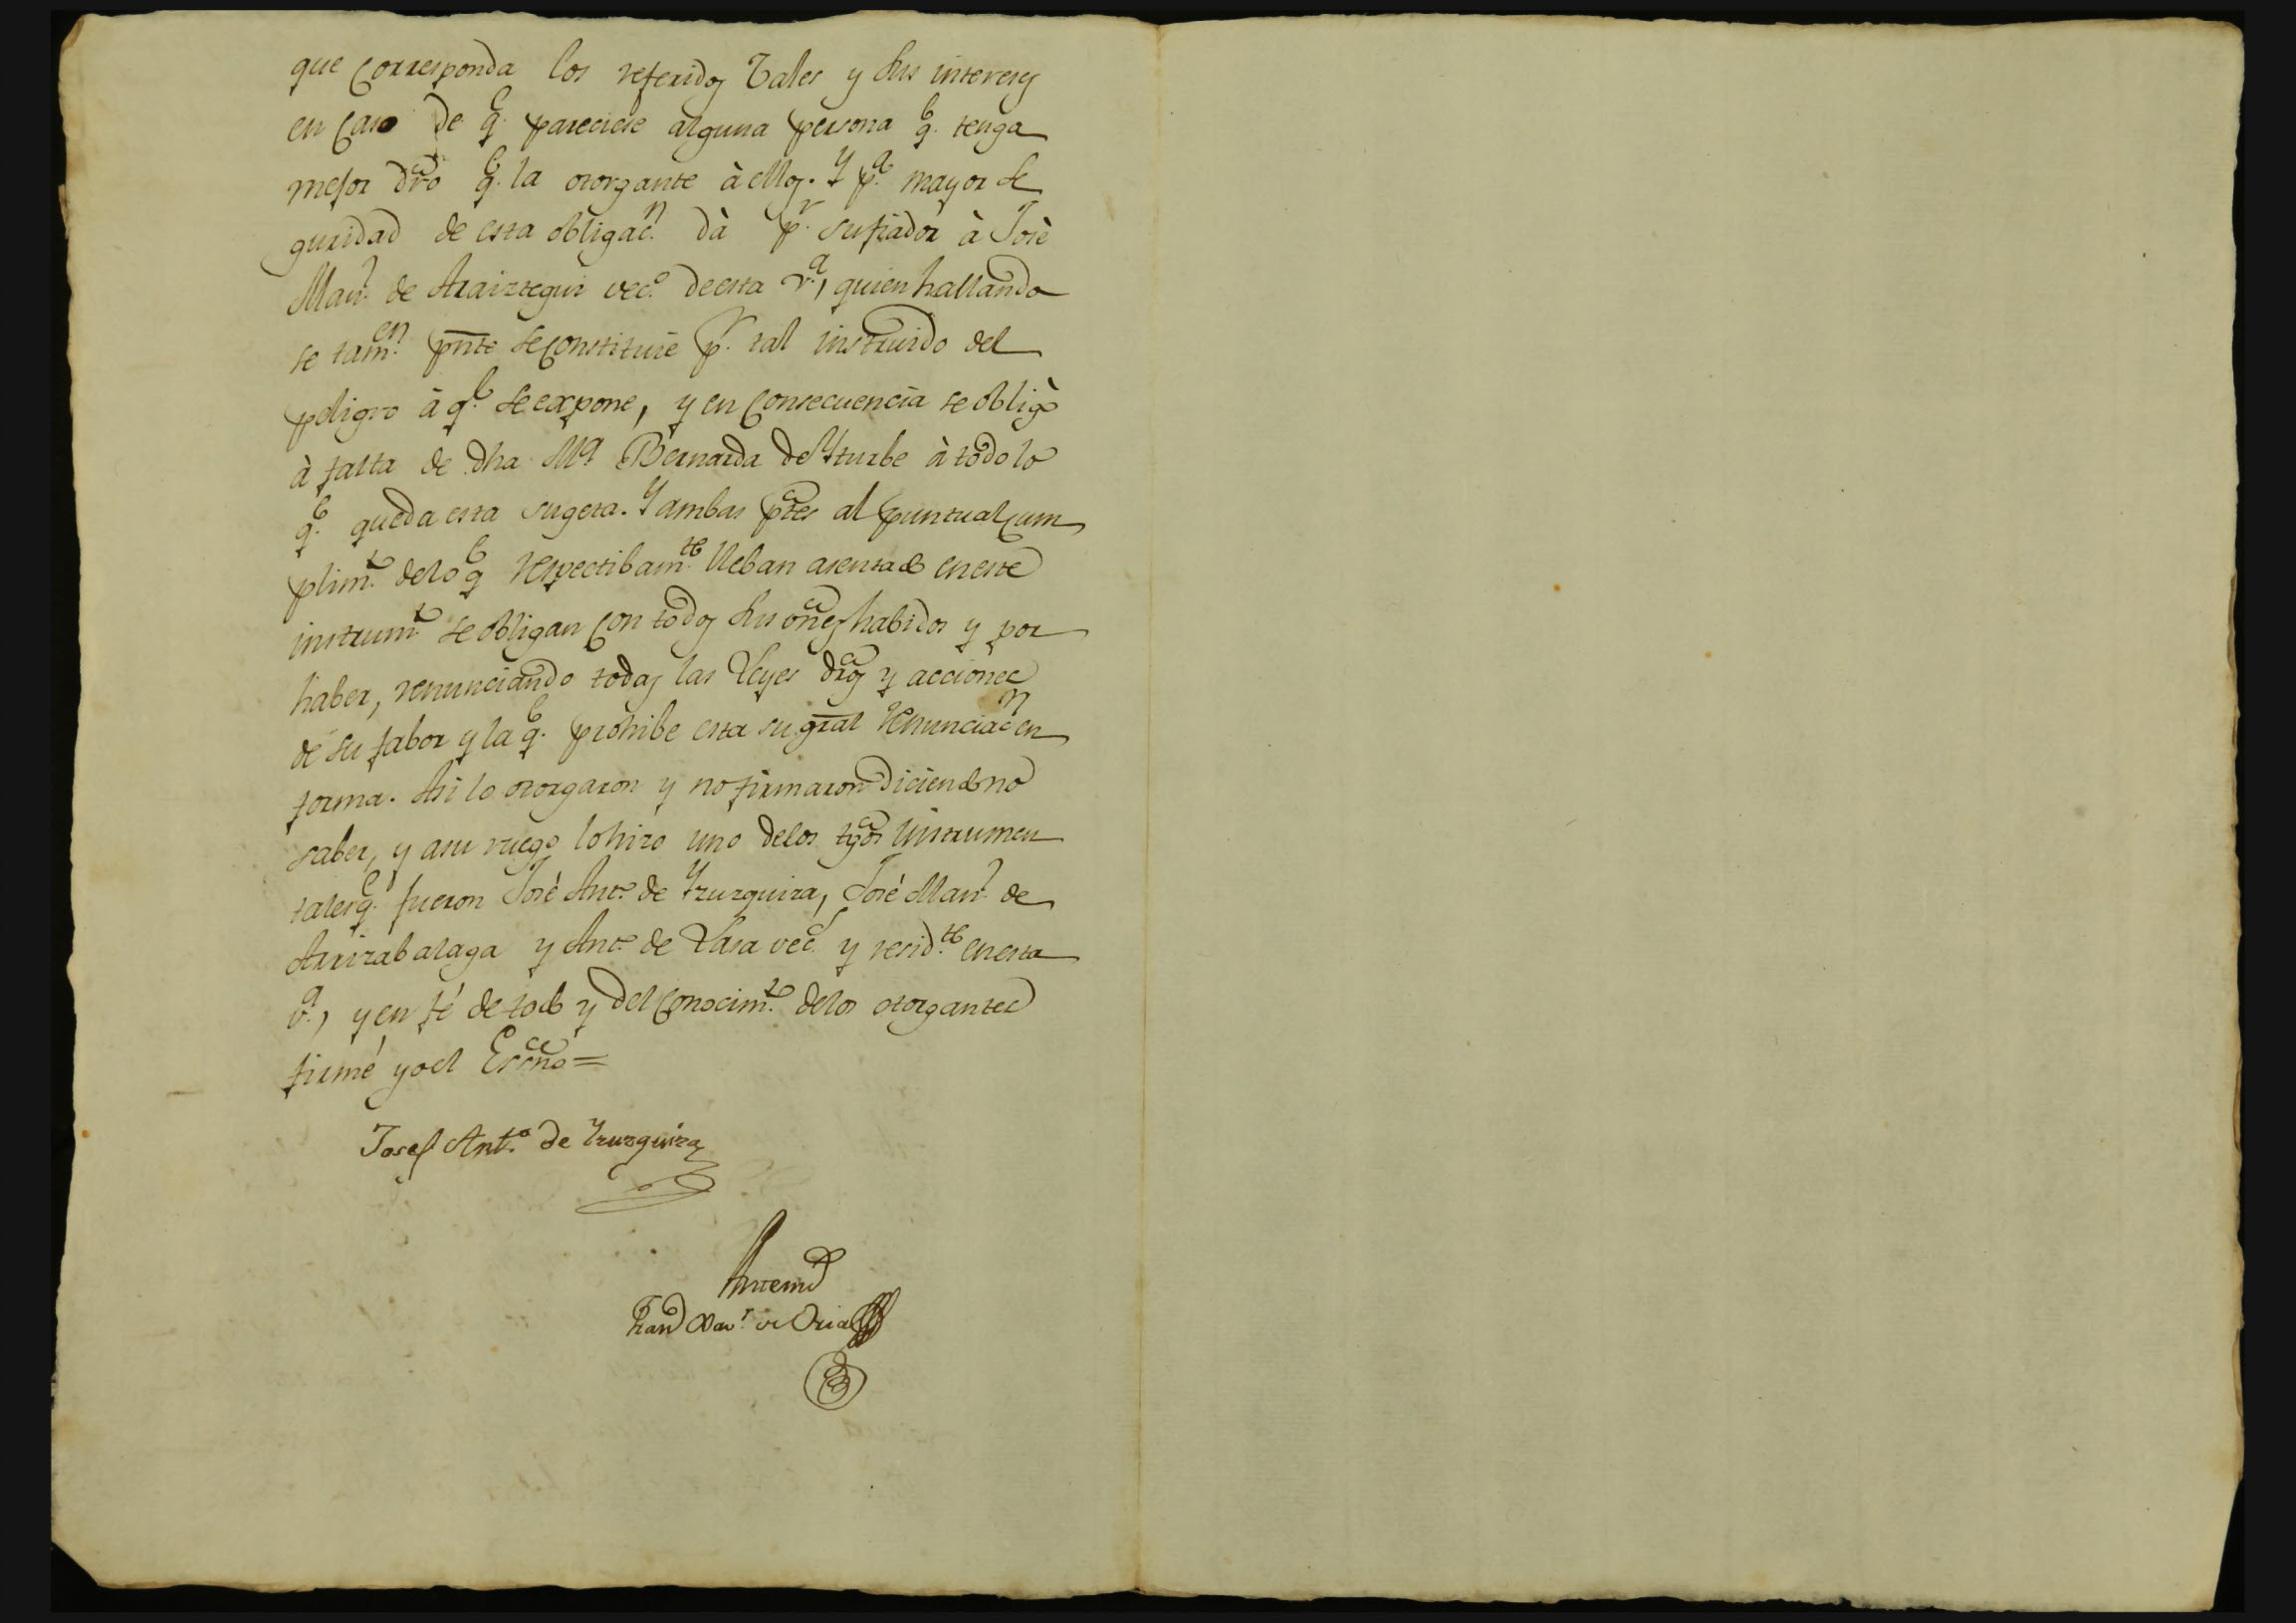 que corresponda los referidos Vales y sus intereses
en caso de q.e pareciese alguna persona q.e tenga
mejor dro q.e la otorgante à ellos. Y p.a mayor se
guridad de esta obligac.n dà p.r su fiador à José
Man.l de Araiztegui vec.o de esta v.a, quien hallando
se tam.en pnte se constituie p.r tal instruido del
peligro à q.e se expone, y en consecuencia se obligò
à falta de dha M.a Bernarda de Yturbe à todo lo
q.e queda esta sugeta. Y ambas ptes al puntual cum
plim.to de lo q.e respectibam.te lleban asentado en este
instrum.to se obligan con todos sus vnes habidos y por
haber, renunciando todas las Leyes dros y acciones
de su fabor y la q.e prohibe esta su gral renunciac.n en
forma. Asi lo otorgaron y no firmaron diciendo no
saber, y a su ruego lo hizo uno de los tgos instrumen
tales q.e fueron José Ant.o de Yzurquiza, José Man.l de
Arrizabalaga y Ant.o de Lasa vec.s y resid.tes en esta
v.a, y en fé de todo y del conocim.to de los otorgantes
firmé yo el Essno=
Josef Ant.o de Yzurquiza
Antemi
Fran.co Xav.r de Oria